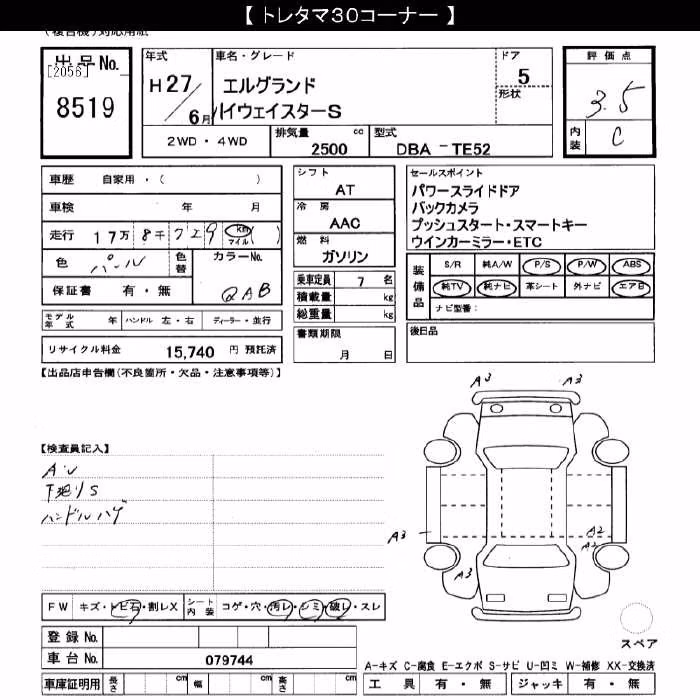 【 トレタマ30コーナー 】
(複合機)対応用紙
出品No.
[2056]
8519
年式
H27/6月
車名・グレード
エルグランド
ハイウェイスターS
ドア
5
形状
評価点
3.5
内装
C
2WD・4WD
排気量 cc
2500
型式
DBA － TE52
車歴 自家用・( )
車検 年 月
走行 17万8千729 km マイル ( )
色 パール
色替
カラーNo.
QAB
保証書 有・無
モデル年式 年 ハンドル 左・右 ディーラー・並行
リサイクル料金 15,740 円 預託済
シフト
AT
冷房
AAC
燃料
ガソリン
乗車定員 7 名
積載量 kg
総重量 kg
書類期限
月 日
セールスポイント
パワースライドドア
バックカメラ
プッシュスタート・スマートキー
ウインカーミラー・ETC
装備品
S/R 純A/W P/S P/W ABS
純TV 純ナビ 革シート 外ナビ エアB
ナビ型番:
後日品
【出品店申告欄(不良箇所・欠品・注意事項等)】
【検査員記入】
A・U
下廻りS
ハンドルハゲ
A3 A3
A3
A2
A2
A3
FW キズ・トビ石・割レX
シート内装 コゲ・穴・汚レ・シミ・破レ・スレ
登録No.
車台No. 079744
車庫証明用 長さ cm 幅 cm 高さ cm
スペア
A-キズ C-腐食 E-エクボ S-サビ U-凹ミ W-補修 XX-交換済
工具 有・無 ジャッキ 有・無